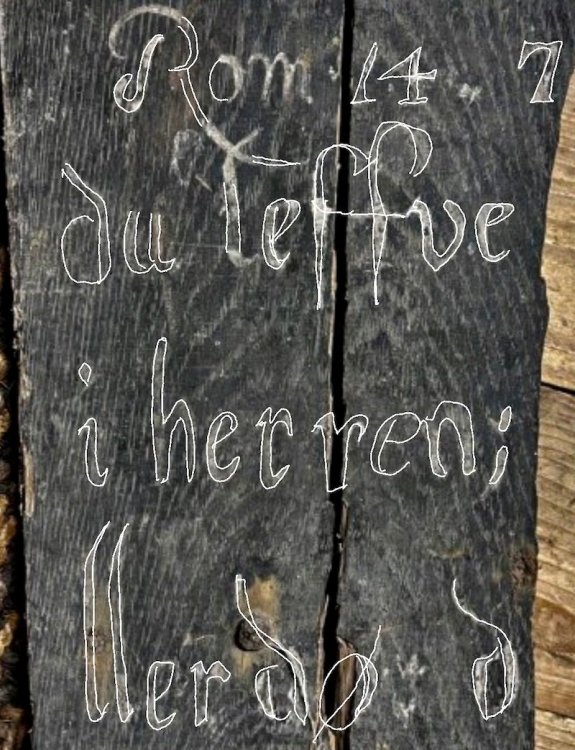 Rom 14. 7
du leffve
i herren;
ller dø d